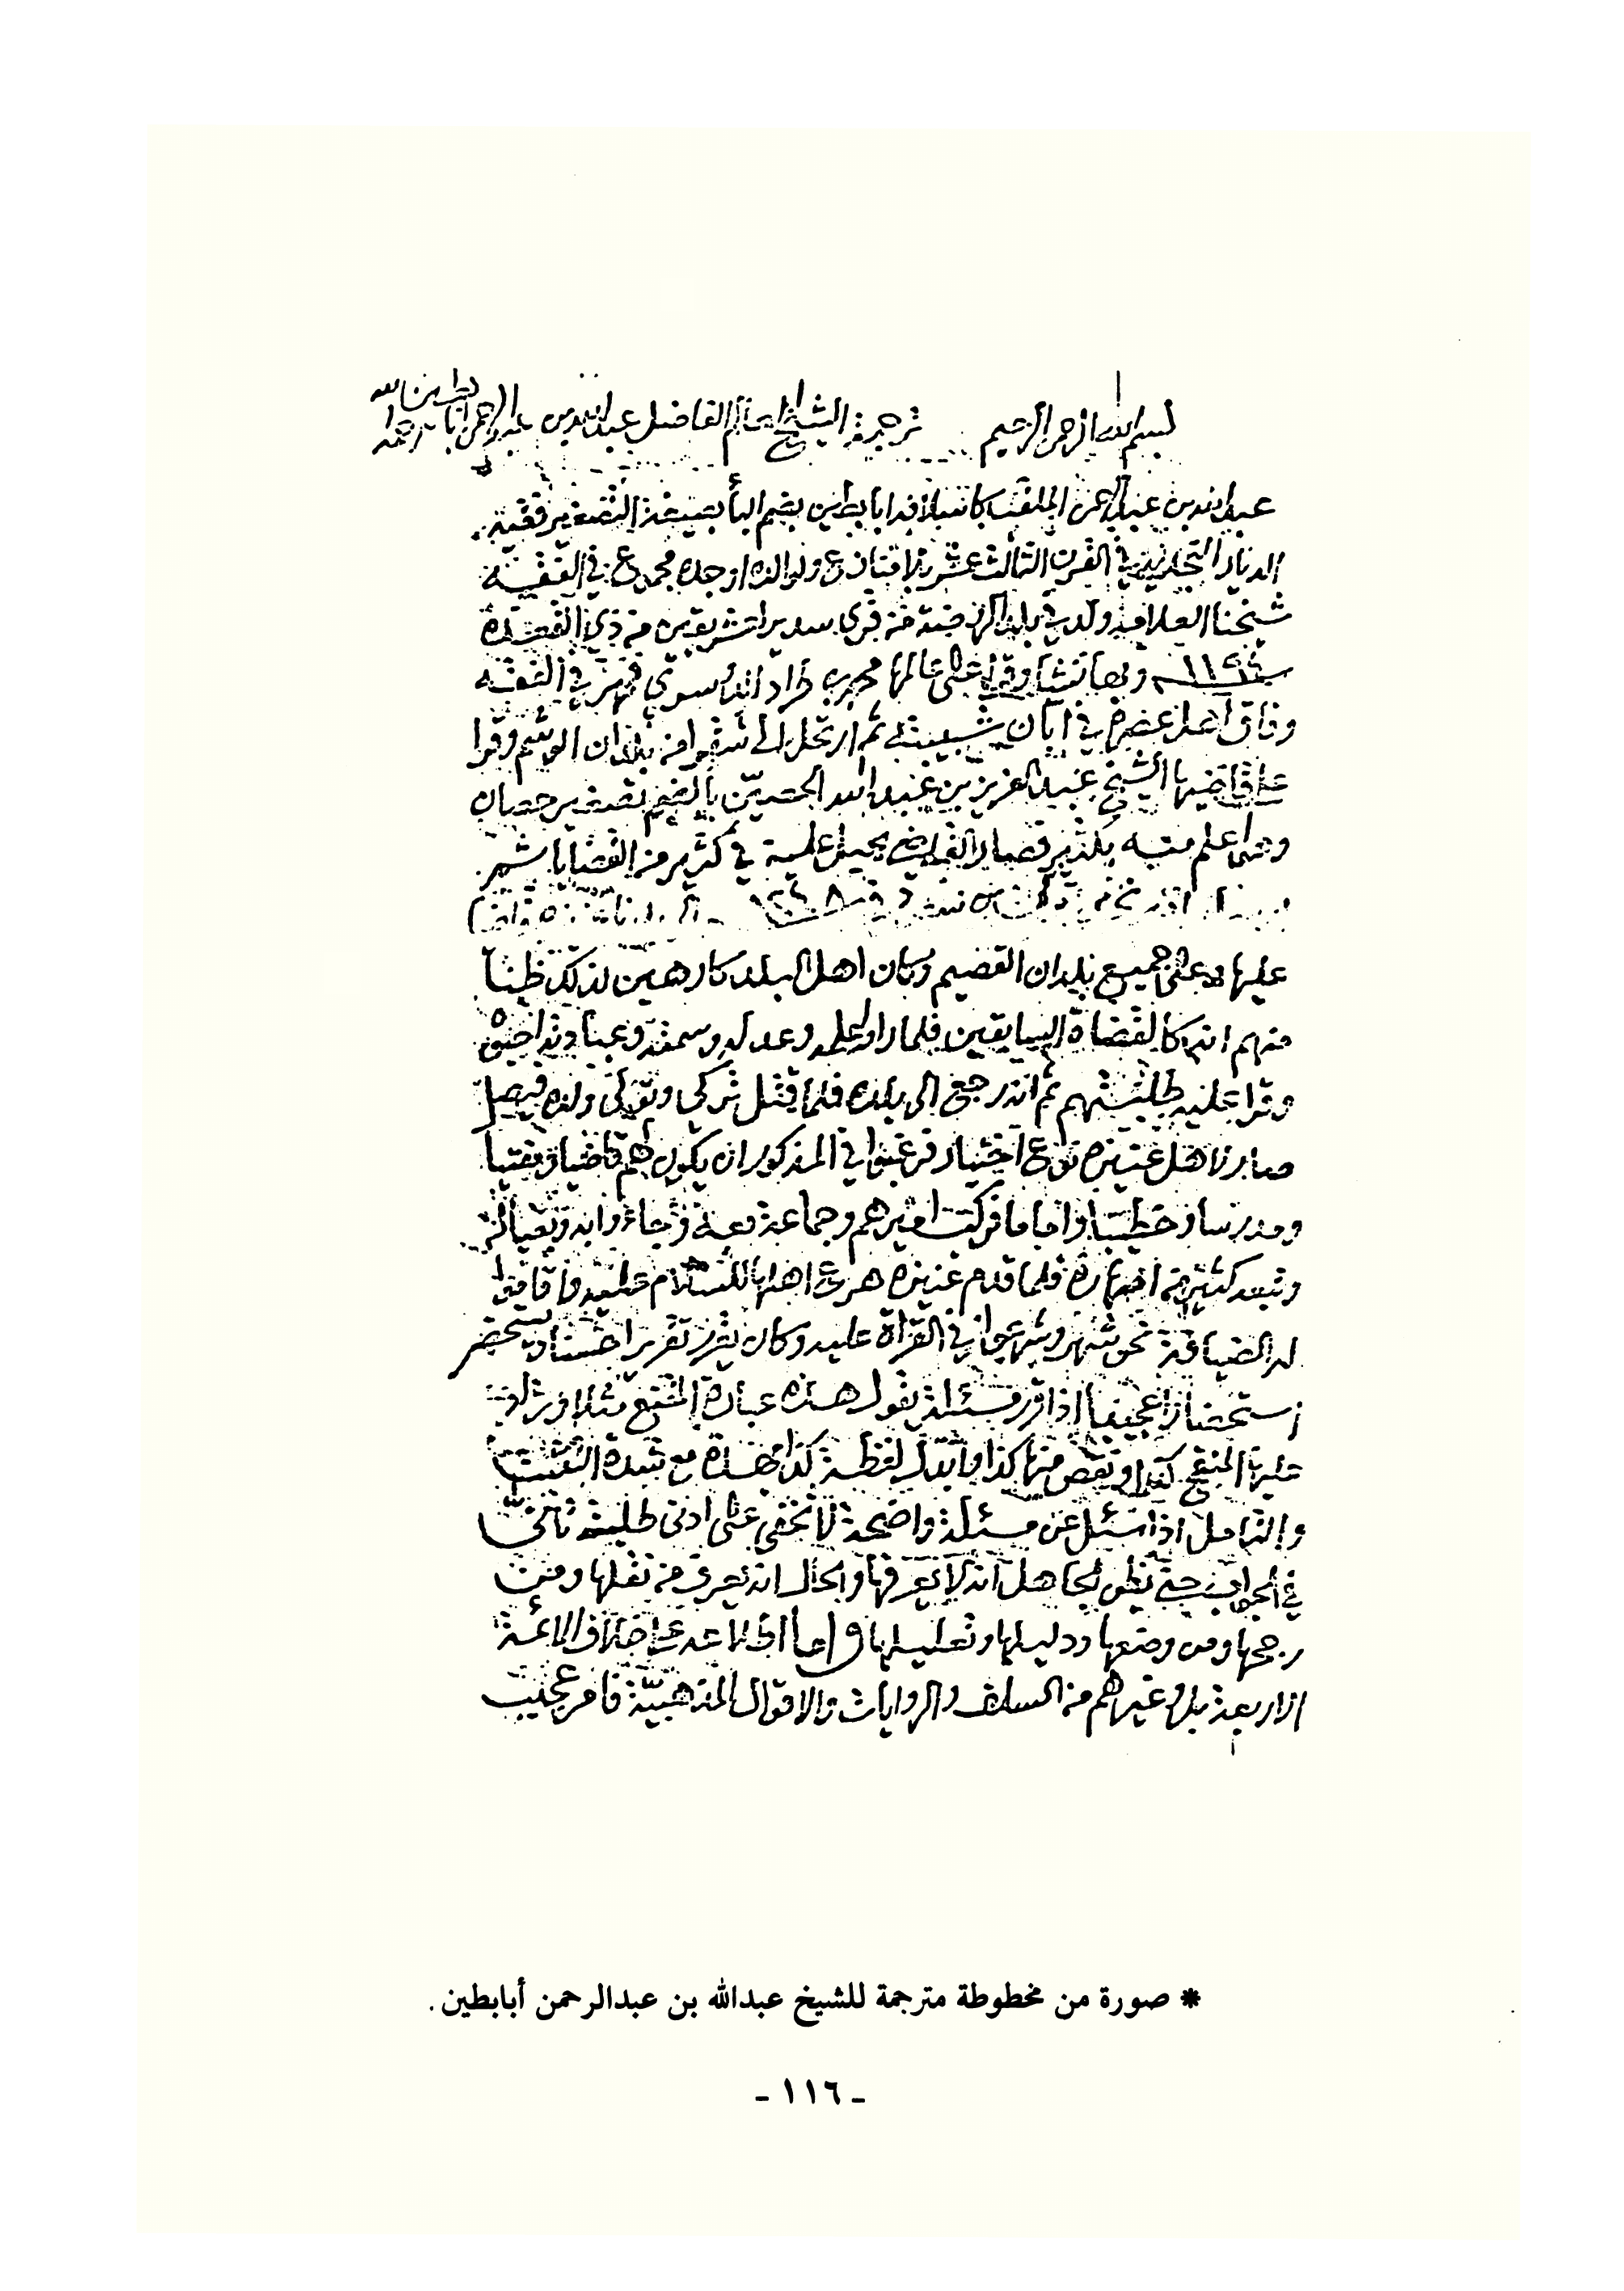 بسم الله الرحمن الرحيم ترجمة الشيخ العالم الفاضل عبدالله بن عبدالرحمن أبابطين رحمه الله
عبدالله بن عبدالرحمن الملقب كاسلافه ابابطين بضم البأ بصيغة التصغير فقيه
الديار النجدية في القرن الثالث عشر بلا
شيخنا العلامة ولد في بلد الروضة من قرى سدير لعشر بقين من ذي القعدة
سنة ١١٩٤ وبها نشأ وقرأ على عالمها محمد طراد الدوسري فمهر في الفقه
وفاق اهل عصره في ابان شبيبته ثم ارتحل الى شقرا من بلدان الوشم وقرا
على قاضيها الشيخ عبدالعزيز بن عبدالله الحصين بالضم تصغير حصان
بكثير فصار القاضي يحيل عليه في كثير من القضايا
١٢٤٨
عليها وعلى جميع بلدان القصيم وكان اهل البلد كارهين لذلك ظنا
منهم انه كالقضاة السابقين فلما راوا علمه وعدله وسمته وعبادته احبوه
وقرا عليه طلبتهم ثم انه رجع الى بلده فلما قتل تركي وتولى ولده فيصل
صار لاهل عنيزه نوع اختيار فرغبوا في المذكور ان يكون لهم قاضيا ومفتيا
ومدرسا وخطيبا واماما فركب اميرهم وجماعة معه وجاءوا به وبعياله
وبعد كثير من فلما قدم عنيزه هرع اهلها للسلام عليه واقاموا
له الضيافة نحو شهر وشرعوا في القراة عليه وكان يقرر تقريرا حسنا ويستحضر
استحضارا عجيبا اذا قرر مسئلة يقول هذه عبارة المقنع مثلا وزاد
عليها المنقح كذا ونقص منها كذا وابدل لفظة كذا بهذه مع شدة التثبت
والتامل اذا سئل عن مسئلة واضحة لا تخفى على ادنى طلبته تأنى
في الجواب حتى يظن الجاهل انه لا يعرفها والحال انه يعرف من نقلها ومن
رجحها ومن وضعها ودليلها وتعليلها واما اطلاعه على خلاف الائمة
الاربعة بل وغيرهم من السلف والروايات والاقوال المذهبية فامر عجيب
* صورة من مخطوطة مترجمة للشيخ عبدالله بن عبدالرحمن أبابطين .
- ١١٦ -